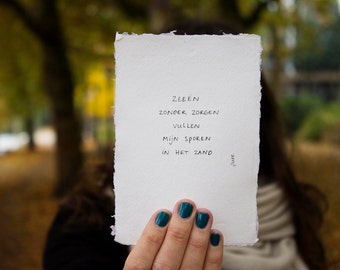 ZEEËN
ZONDER ZORGEN
VULLEN
MIJN SPOREN
IN HET ZAND